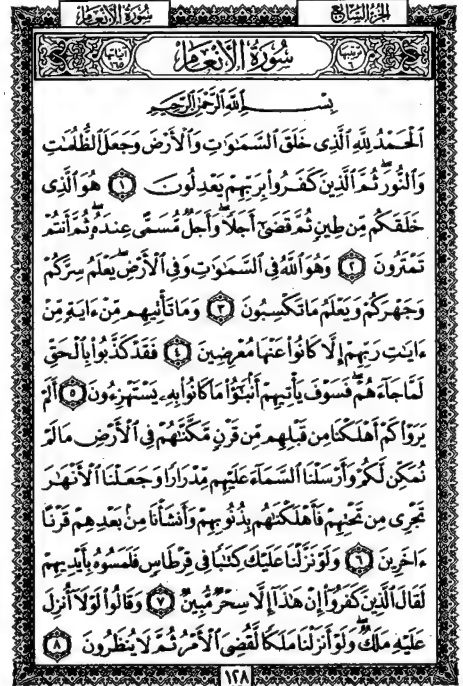 سُورَةُ الأَنْعَامِ الجُزْءُ السَّابِعُ
سُورَةُ الأَنْعَامِ
بِسْمِ ٱللَّهِ ٱلرَّحْمَٰنِ ٱلرَّحِيمِ
ٱلْحَمْدُ لِلَّهِ ٱلَّذِى خَلَقَ ٱلسَّمَٰوَٰتِ وَٱلْأَرْضَ وَجَعَلَ ٱلظُّلُمَٰتِ
وَٱلنُّورَ ۖ ثُمَّ ٱلَّذِينَ كَفَرُوا۟ بِرَبِّهِمْ يَعْدِلُونَ ١ هُوَ ٱلَّذِى
خَلَقَكُم مِّن طِينٍ ثُمَّ قَضَىٰٓ أَجَلًا ۖ وَأَجَلٌ مُّسَمًّى عِندَهُۥ ۖ ثُمَّ أَنتُمْ
تَمْتَرُونَ ٢ وَهُوَ ٱللَّهُ فِى ٱلسَّمَٰوَٰتِ وَفِى ٱلْأَرْضِ ۖ يَعْلَمُ سِرَّكُمْ
وَجَهْرَكُمْ وَيَعْلَمُ مَا تَكْسِبُونَ ٣ وَمَا تَأْتِيهِم مِّنْ ءَايَةٍ مِّنْ
ءَايَٰتِ رَبِّهِمْ إِلَّا كَانُوا۟ عَنْهَا مُعْرِضِينَ ٤ فَقَدْ كَذَّبُوا۟ بِٱلْحَقِّ
لَمَّا جَآءَهُمْ ۖ فَسَوْفَ يَأْتِيهِمْ أَنۢبَٰٓؤُا۟ مَا كَانُوا۟ بِهِۦ يَسْتَهْزِءُونَ ٥ أَلَمْ
يَرَوْا۟ كَمْ أَهْلَكْنَا مِن قَبْلِهِم مِّن قَرْنٍ مَّكَّنَّٰهُمْ فِى ٱلْأَرْضِ مَا لَمْ
نُمَكِّن لَّكُمْ وَأَرْسَلْنَا ٱلسَّمَآءَ عَلَيْهِم مِّدْرَارًا وَجَعَلْنَا ٱلْأَنْهَٰرَ
تَجْرِى مِن تَحْتِهِمْ فَأَهْلَكْنَٰهُم بِذُنُوبِهِمْ وَأَنشَأْنَا مِنۢ بَعْدِهِمْ قَرْنًا
ءَاخَرِينَ ٦ وَلَوْ نَزَّلْنَا عَلَيْكَ كِتَٰبًا فِى قِرْطَاسٍ فَلَمَسُوهُ بِأَيْدِيهِمْ
لَقَالَ ٱلَّذِينَ كَفَرُوٓا۟ إِنْ هَٰذَآ إِلَّا سِحْرٌ مُّبِينٌ ٧ وَقَالُوا۟ لَوْلَآ أُنزِلَ
عَلَيْهِ مَلَكٌ ۖ وَلَوْ أَنزَلْنَا مَلَكًا لَّقُضِىَ ٱلْأَمْرُ ثُمَّ لَا يُنظَرُونَ ٨
١٢٨